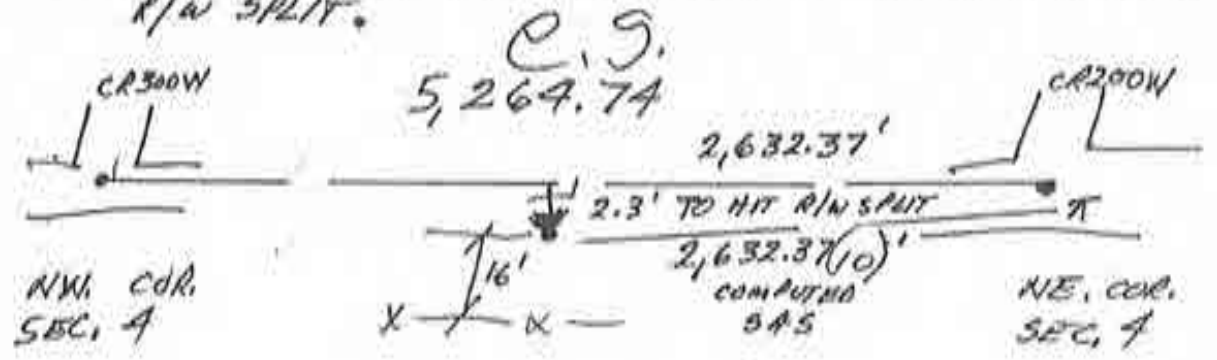 R/W SPLIT.
C.S.
5,264.74
CR300W
CR200W
2,632.37'
2.3' TO HIT R/W SPLIT
2,632.37(10)'
COMPUTED
16'
X
NW. COR.
SEC. 4
NE. COR.
SEC. 4